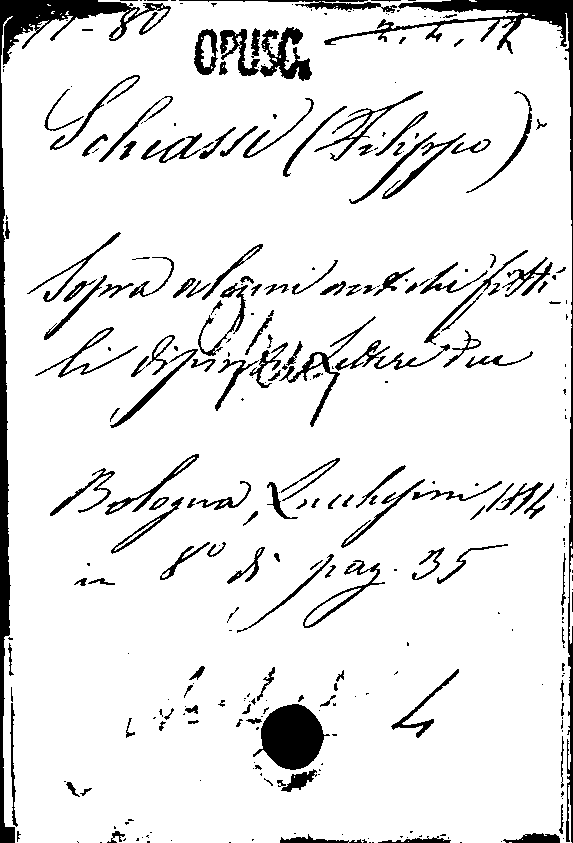 11-80 2.4.12
OPUSC.
Schiassi (Filippo)
Sopra alcuni antichi fitti-
li dipinti Lettere due
Bologna, Lucchesini, 1814
in 8° di pag. 35
4